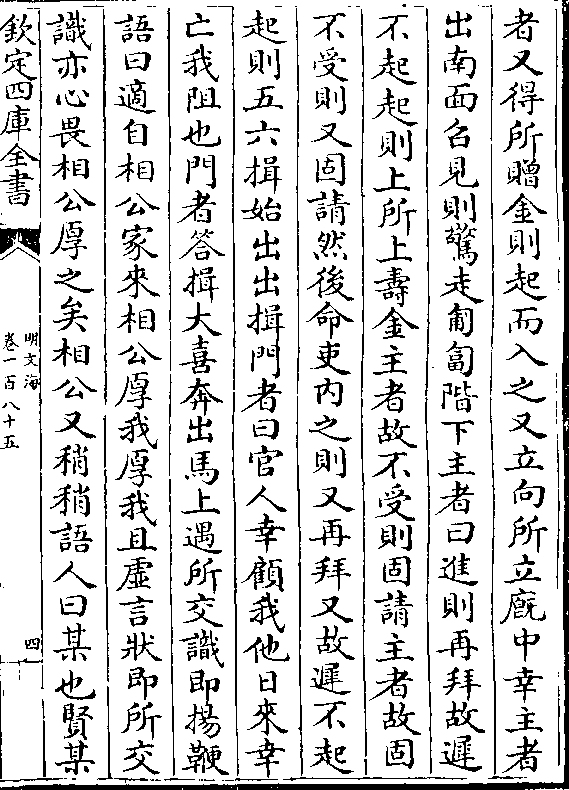 者又得所贈金則起而入之又立向所立廐中幸主者
出南面召見則驚走匍匐階下主者曰進則再拜故遲
不起起則上所上壽金主者故不受則固請主者故固
不受則又固請然後命吏内之則又再拜又故遲不起
起則五六揖始出出揖門者曰官人幸顧我他日來幸
亡我阻也門者答揖大喜奔出馬上遇所交識即揚鞭
語曰適自相公家來相公厚我厚我且虚言狀即所交
識亦心畏相公厚之矣相公又稍稍語人曰某也賢某
欽定四庫全書
明文海
卷一百八十五
四